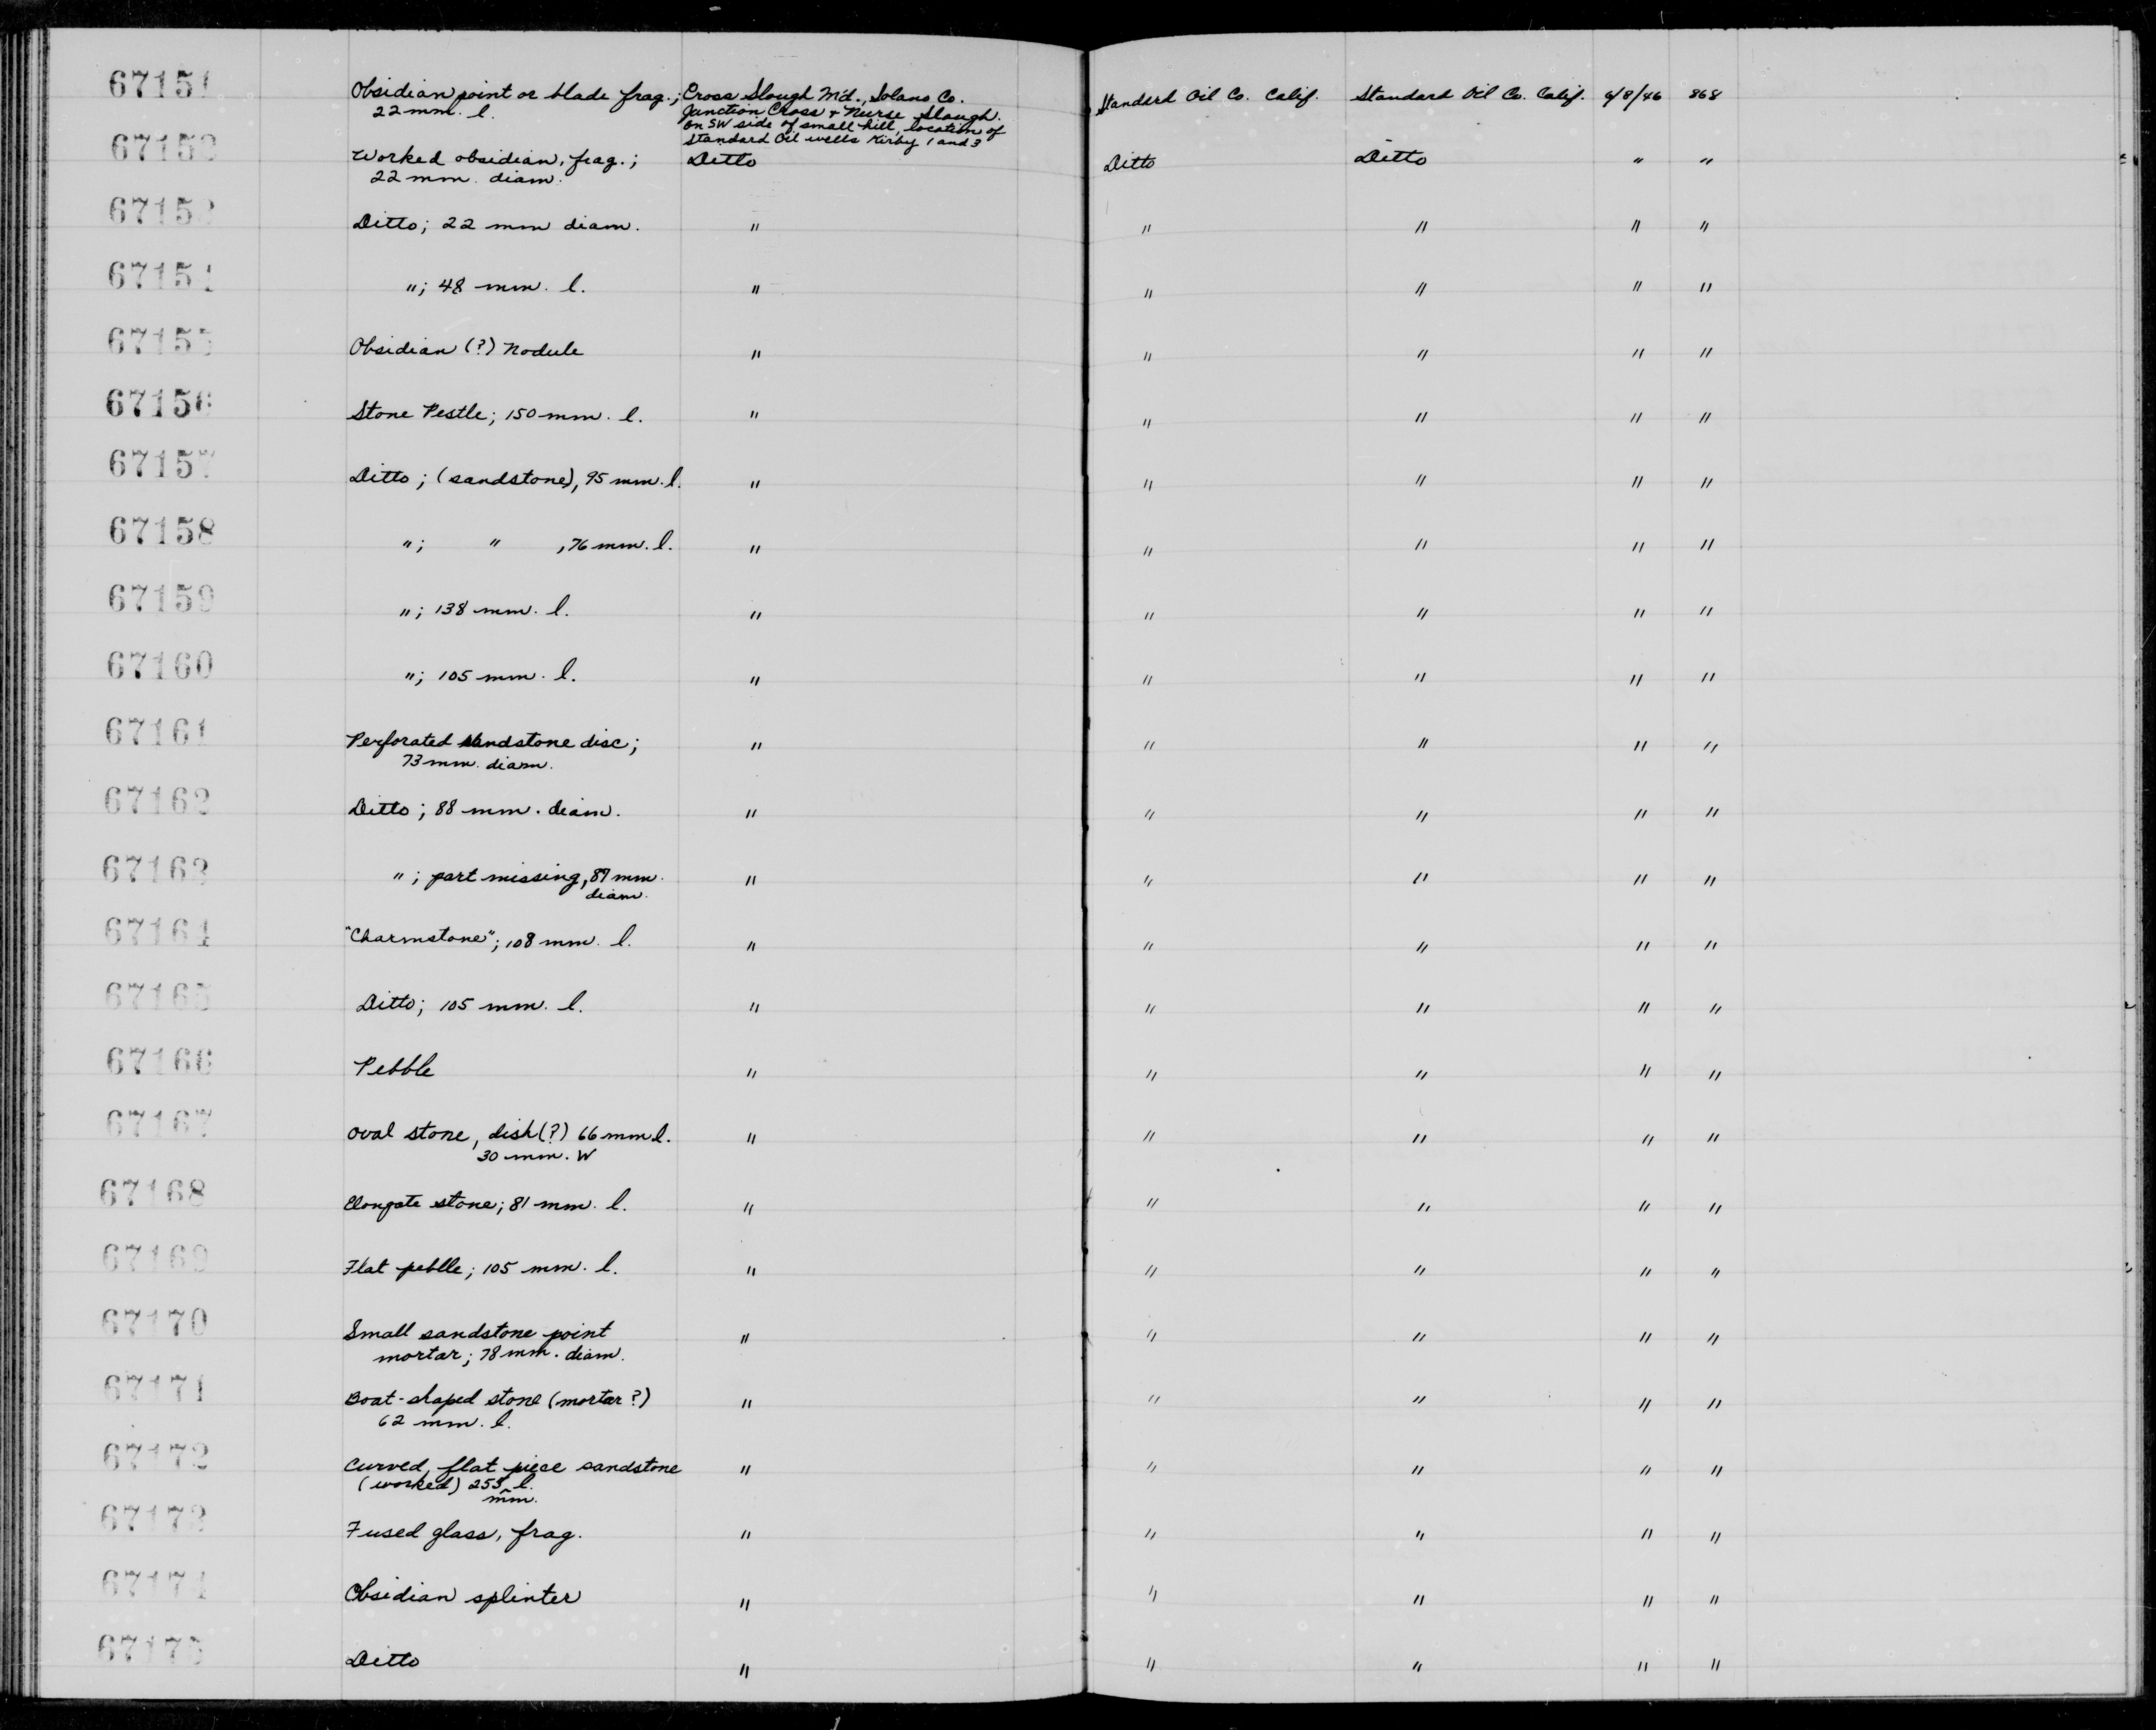 67151 Obsidian point or blade frag.; Cross Slough Md., Solano Co. Standard Oil Co. Calif. Standard Oil Co. Calif. 6/8/46 868
22 mm. l. Junction Cross & Nurse Slough.
on SW side of small hill, location of
Standard Oil wells Kirby 1 and 3
67152 Worked obsidian, frag.; Ditto Ditto Ditto " "
22 mm. diam.
67153 Ditto; 22 mm diam. " " " " "
67154 "; 48 mm. l. " " " " "
67155 Obsidian (?) Nodule " " " " "
67156 Stone Pestle; 150 mm. l. " " " " "
67157 Ditto; (sandstone), 95 mm. l. " " " " "
67158 "; " , 76 mm. l. " " " " "
67159 "; 138 mm. l. " " " " "
67160 "; 105 mm. l. " " " " "
67161 Perforated sandstone disc; " " " " "
73 mm. diam.
67162 Ditto; 88 mm. diam. " " " " "
67163 "; part missing, 87 mm. " " " " "
diam.
67164 "Charmstone"; 108 mm. l. " " " " "
67165 Ditto; 105 mm. l. " " " " "
67166 Pebble " " " " "
67167 Oval stone, dish (?) 66 mm l. " " " " "
30 mm. W
67168 Elongate stone; 81 mm. l. " " " " "
67169 Flat pebble; 105 mm. l. " " " " "
67170 Small sandstone point " " " " "
mortar; 78 mm. diam.
67171 Boat-shaped stone (mortar?) " " " " "
62 mm. l.
67172 Curved, flat piece sandstone " " " " "
(worked) 255 ^ l.
mm.
67173 Fused glass, frag. " " " " "
67174 Obsidian splinter " " " " "
67175 Ditto " " " " "